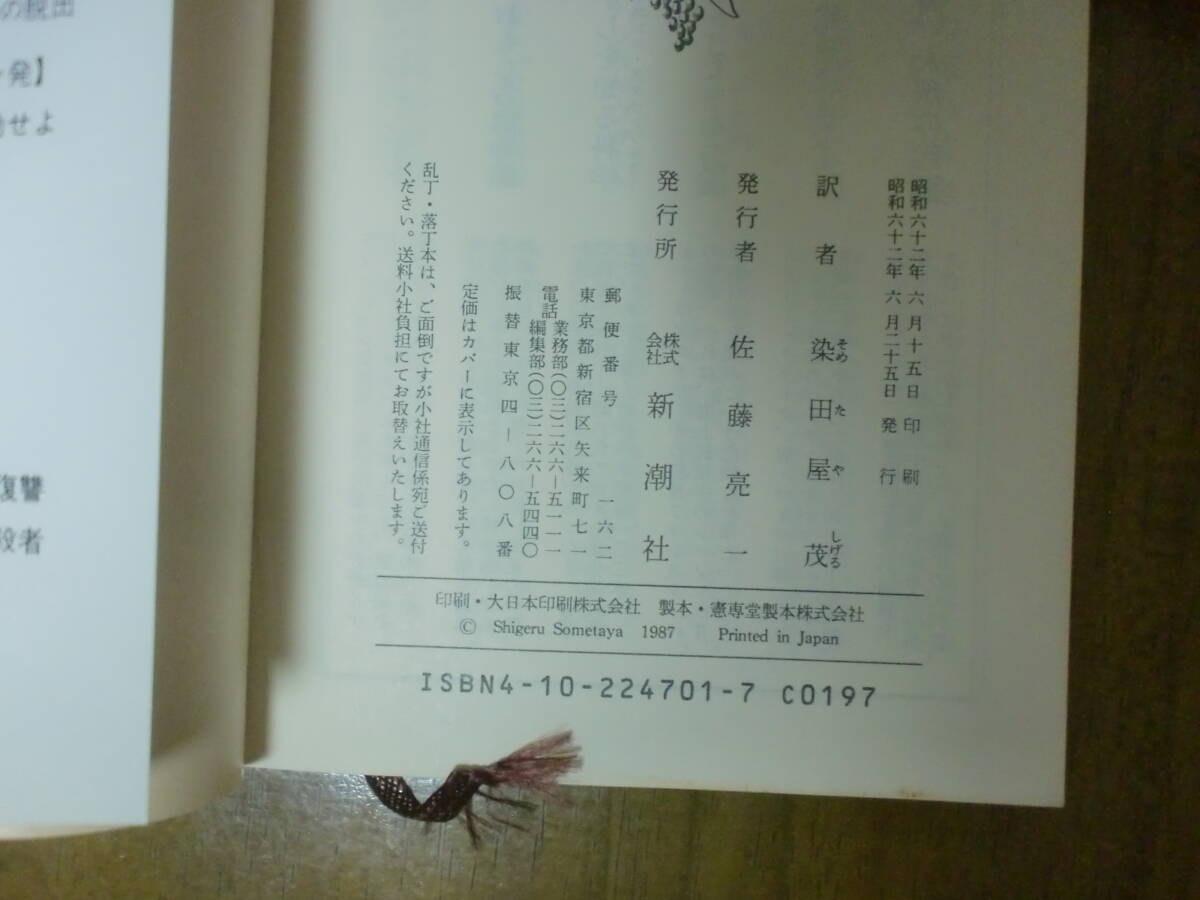 昭和六十二年 六 月十五日 印刷
昭和六十二年 六 月二十五日 発行
訳者 染田屋茂
そめ た や しげる
発行者 佐藤亮一
発行所 株式会社 新潮社
郵便番号 一六二
東京都新宿区矢来町七一
電話 業務部(〇三)二六六―五一一一
編集部(〇三)二六六―五四四〇
振替東京四―八〇八番
定価はカバーに表示してあります。
乱丁・落丁本は、ご面倒ですが小社通信係宛ご送付
ください。送料小社負担にてお取替えいたします。
印刷・大日本印刷株式会社 製本・憲専堂製本株式会社
© Shigeru Sometaya 1987 Printed in Japan
ISBN4-10-224701-7 C0197
の脱出
発】
せよ
復讐
者